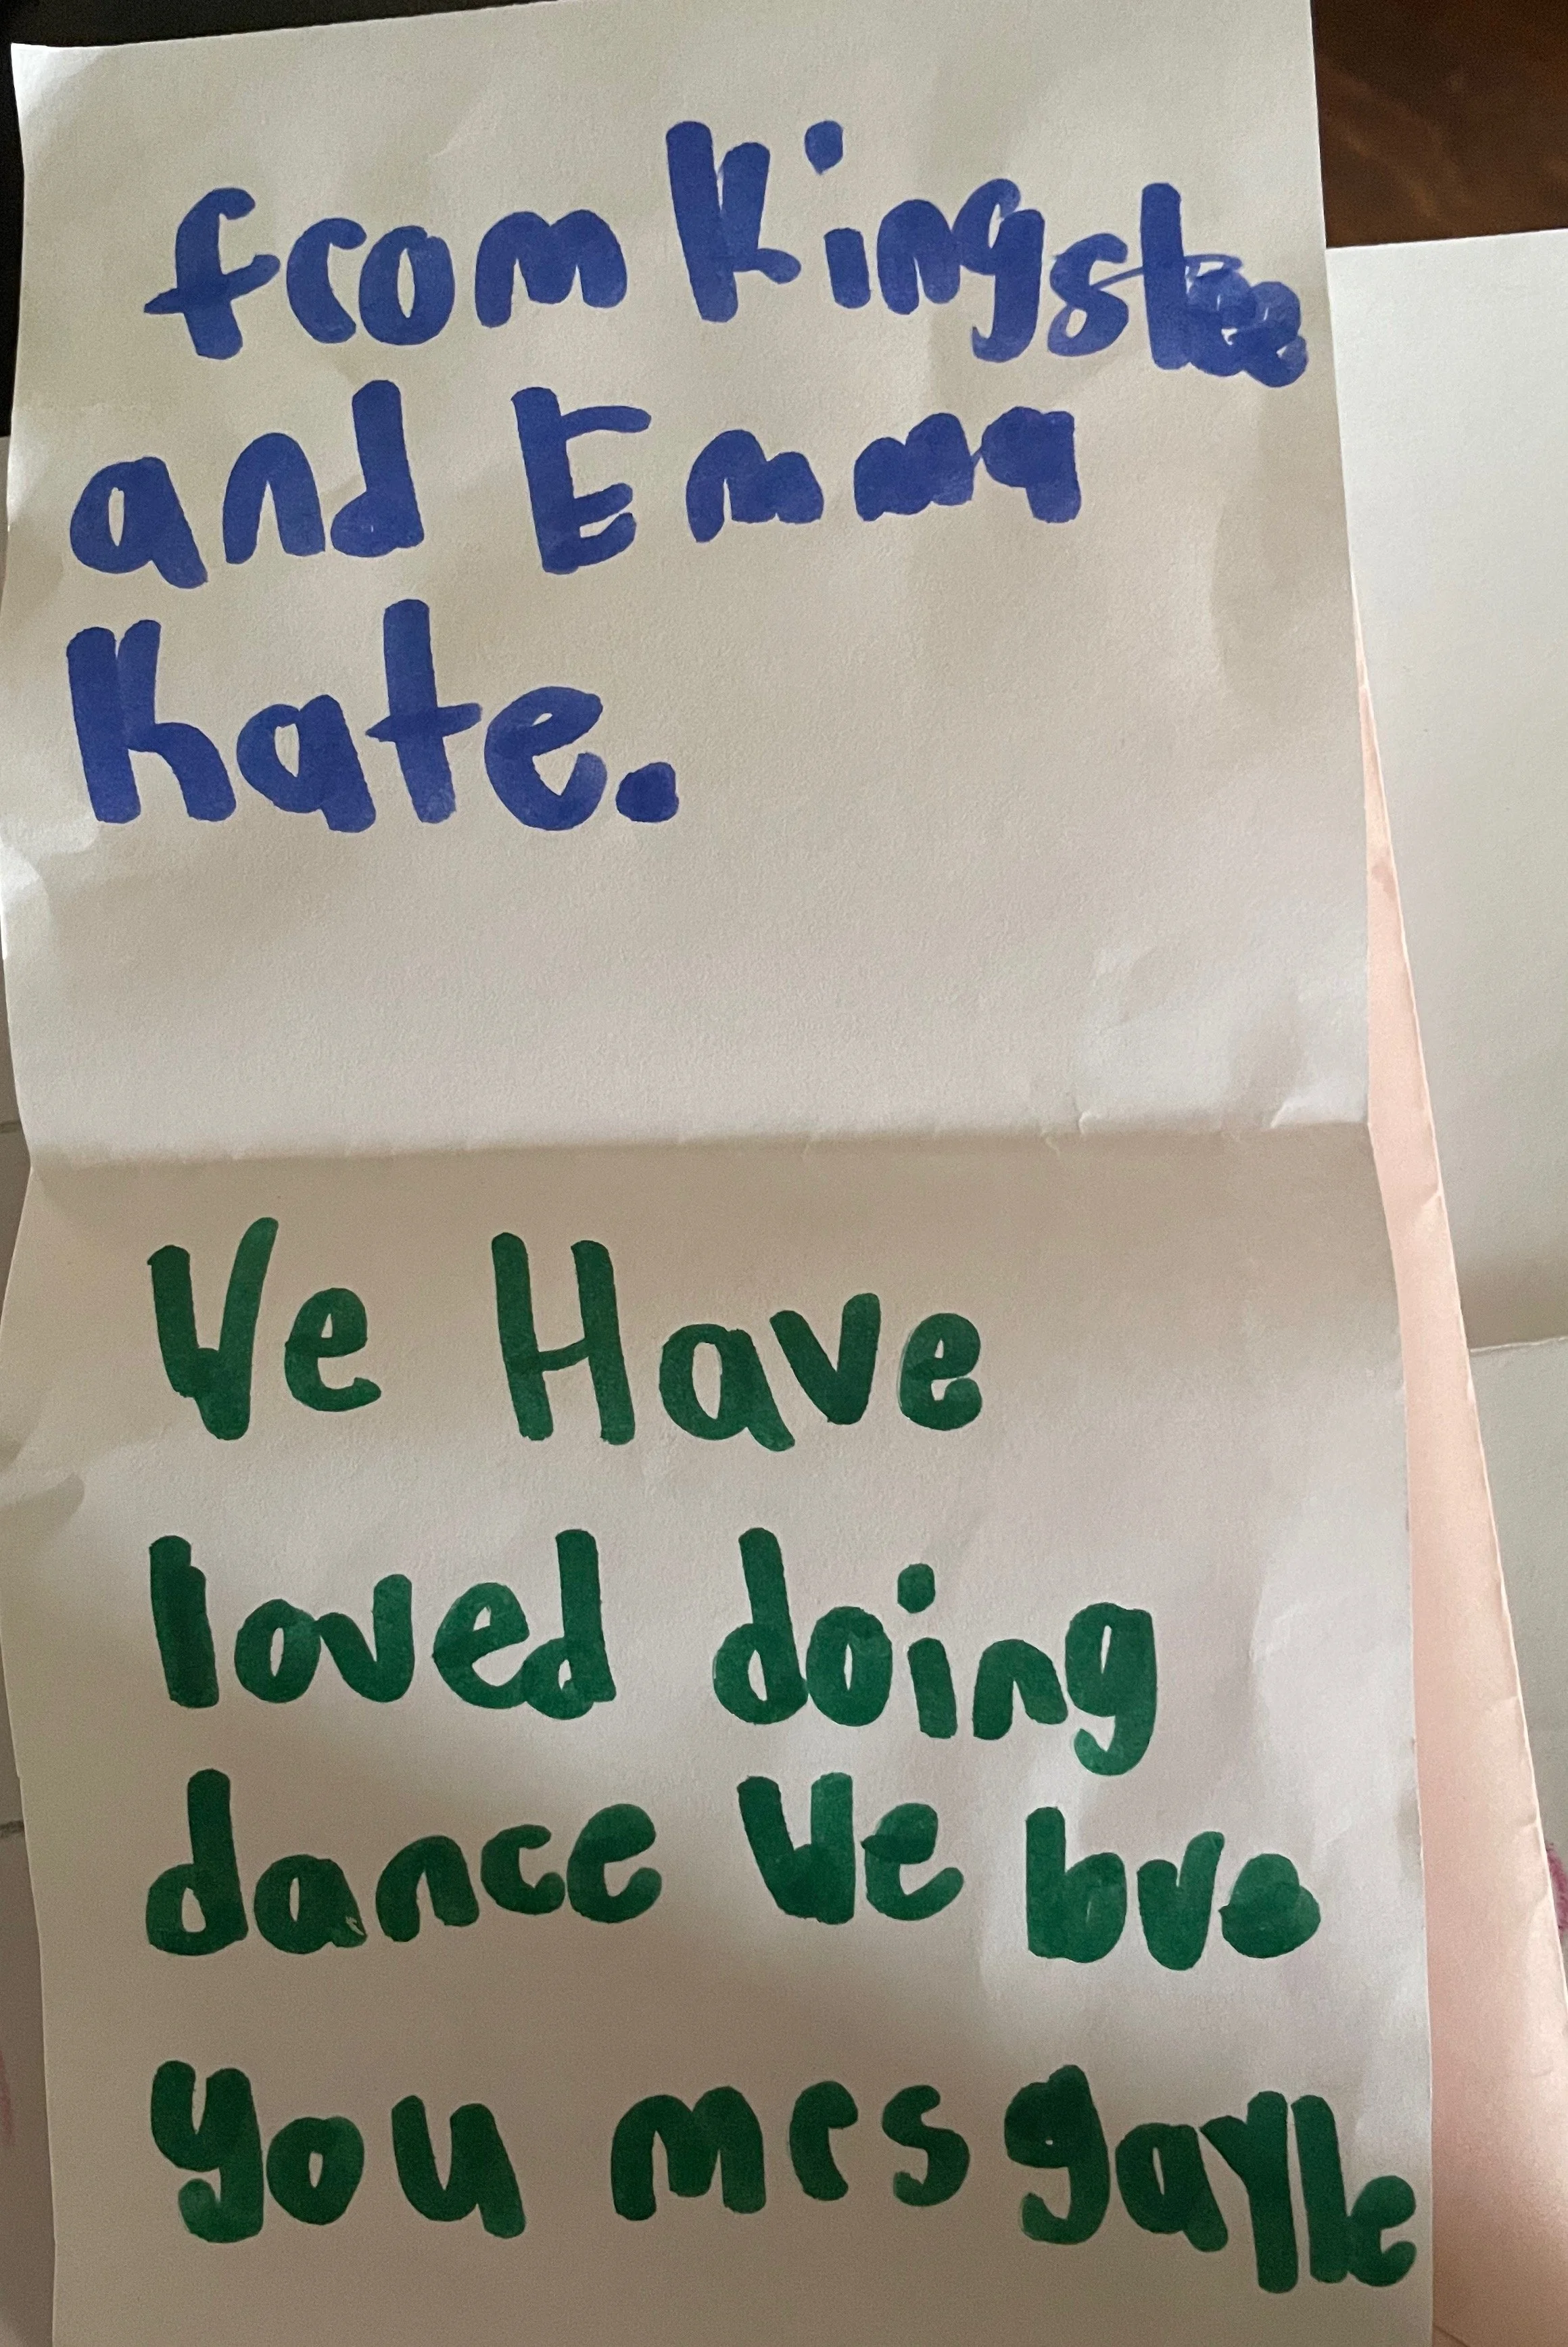 from Kingslee
and Emma
Kate.
Ve Have
loved doing
dance Ve love
you mrs gayle